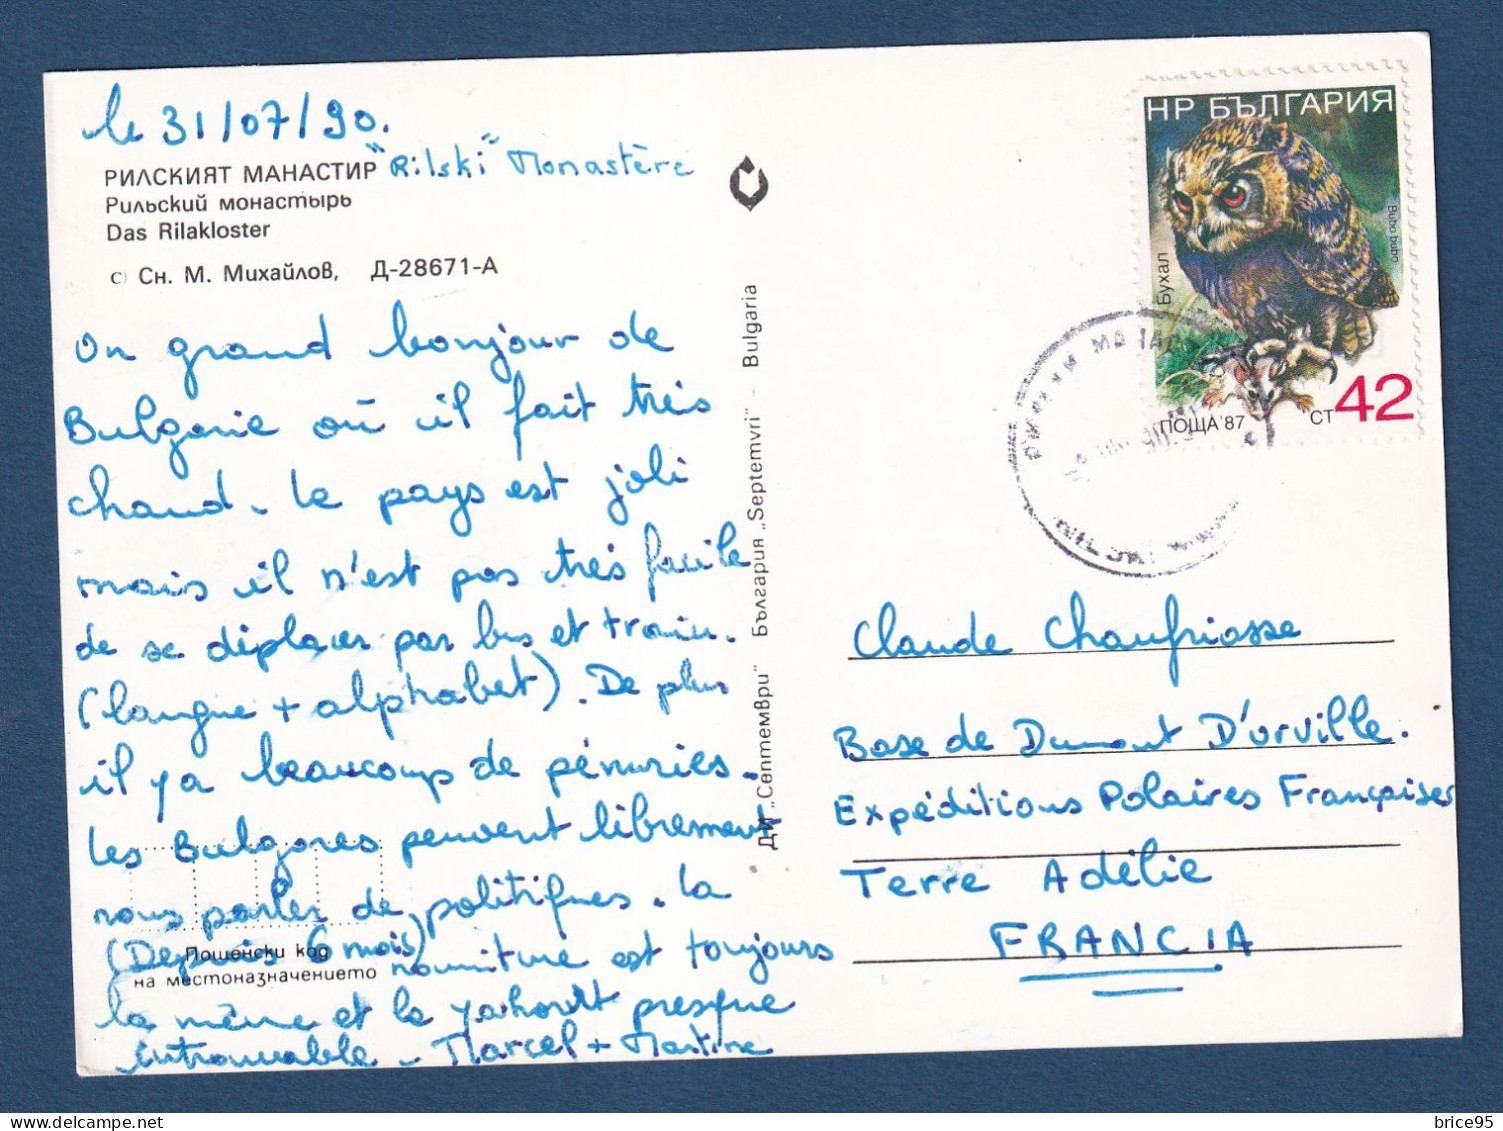 le 31/07/90.
РИЛСКИЯТ МАНАСТИР "Rilski" Monastère
Рильский монастырь
Das Rilakloster
С) Сн. М. Михайлов, Д-28671-А
Un grand bonjour de
Bulgarie où il fait très
chaud. Le pays est joli
mais il n'est pas très facile
de se déplacer par bus et train.
(langue + alphabet). De plus
il y a beaucoup de pénuries.
Les Bulgares peuvent librement
nous parler de politiques. La
(Depuis 6 mois) nourriture est toujours
la même et le yahourt presque
introuvable - Marcel + Martine
Пощенски код
на местоназначението
ДИ „Септември" България „Septemvri" - Bulgaria
НР БЪЛГАРИЯ
Бухал
Bubo bubo
ПОЩА'87
СТ 42
Claude Chaufriasse
Base de Dumont D'Urville.
Expéditions Polaires Françaises
Terre Adélie
FRANCIA
brice95